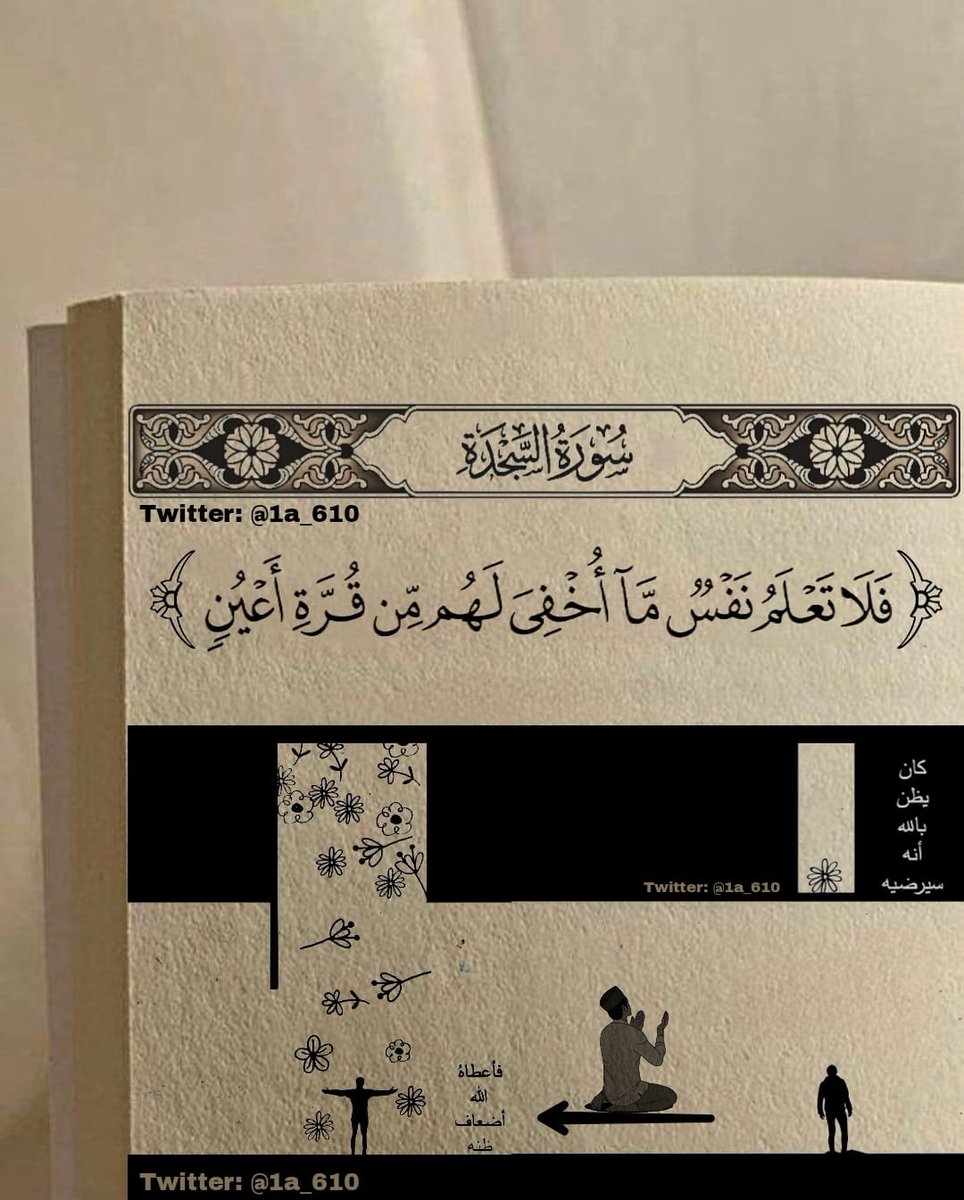 سُورَةُ السَّجْدَةِ
Twitter: @1a_610
﴿فَلَا تَعْلَمُ نَفْسٌ مَّآ أُخْفِىَ لَهُم مِّن قُرَّةِ أَعْيُنٍ﴾
كان
يظن
بالله
أنه
سيرضيه
Twitter: @1a_610
فأعطاهُ
الله
أضعاف
ظنه
Twitter: @1a_610